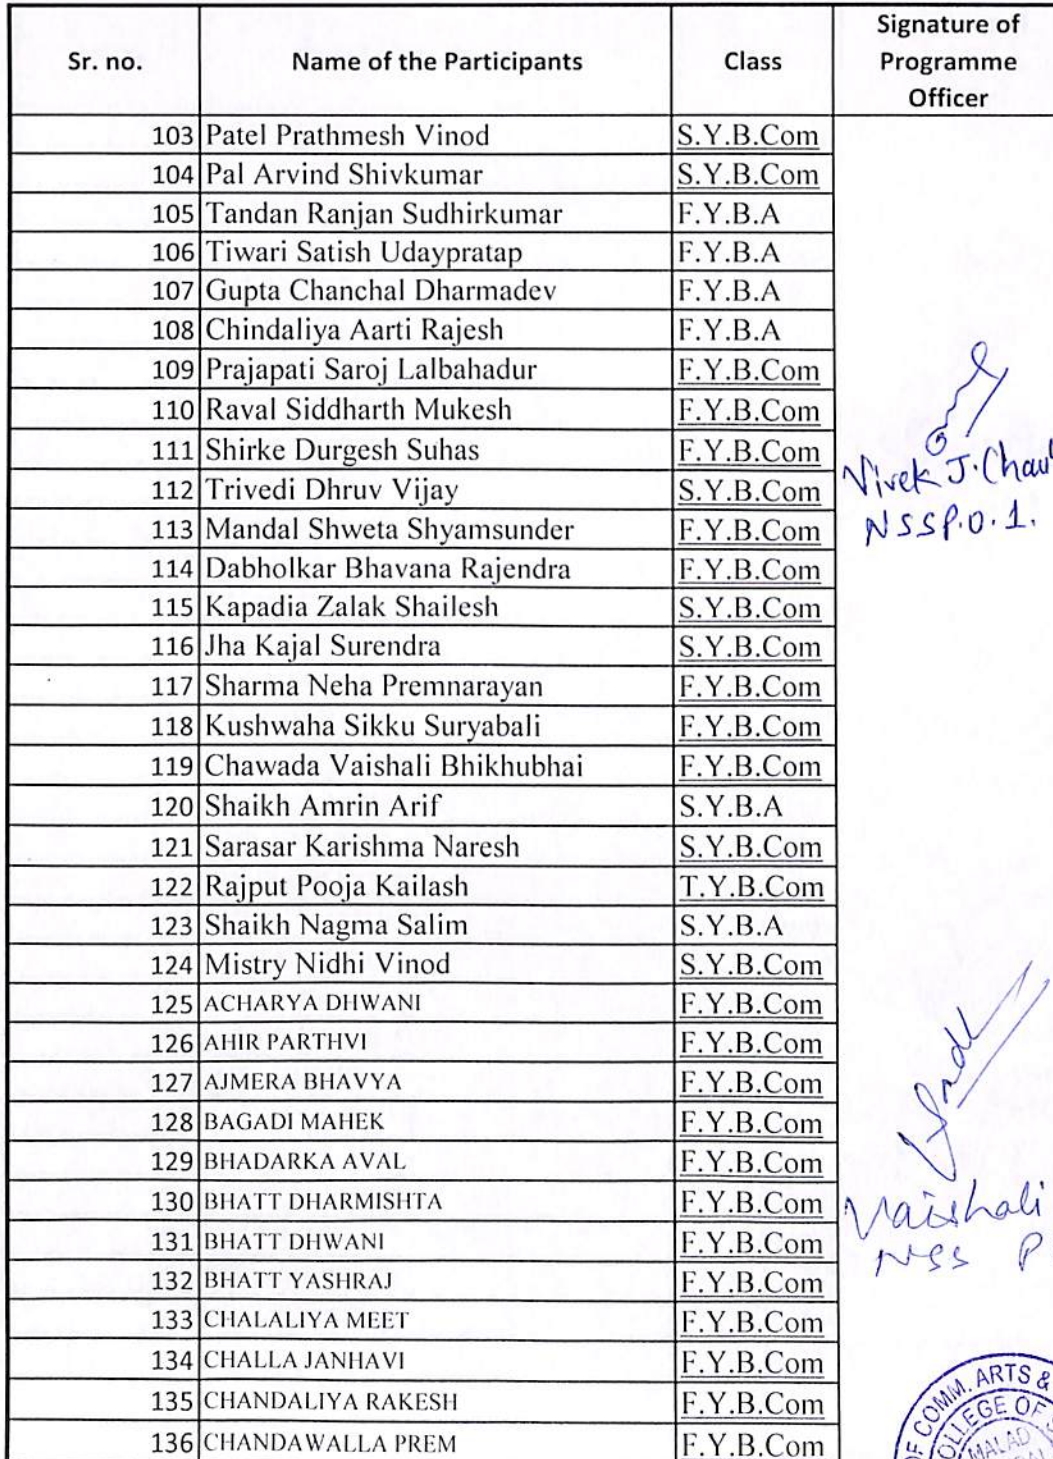 Sr. no. Name of the Participants Class Signature of Programme Officer
103 Patel Prathmesh Vinod S.Y.B.Com
104 Pal Arvind Shivkumar S.Y.B.Com
105 Tandan Ranjan Sudhirkumar F.Y.B.A
106 Tiwari Satish Udaypratap F.Y.B.A
107 Gupta Chanchal Dharmadev F.Y.B.A
108 Chindaliya Aarti Rajesh F.Y.B.A
109 Prajapati Saroj Lalbahadur F.Y.B.Com
110 Raval Siddharth Mukesh F.Y.B.Com
111 Shirke Durgesh Suhas F.Y.B.Com
112 Trivedi Dhruv Vijay S.Y.B.Com
113 Mandal Shweta Shyamsunder F.Y.B.Com
114 Dabholkar Bhavana Rajendra F.Y.B.Com
115 Kapadia Zalak Shailesh S.Y.B.Com
116 Jha Kajal Surendra S.Y.B.Com
117 Sharma Neha Premnarayan F.Y.B.Com
118 Kushwaha Sikku Suryabali F.Y.B.Com
119 Chawada Vaishali Bhikhubhai F.Y.B.Com
120 Shaikh Amrin Arif S.Y.B.A
121 Sarasar Karishma Naresh S.Y.B.Com
122 Rajput Pooja Kailash T.Y.B.Com
123 Shaikh Nagma Salim S.Y.B.A
124 Mistry Nidhi Vinod S.Y.B.Com
125 ACHARYA DHWANI F.Y.B.Com
126 AHIR PARTHVI F.Y.B.Com
127 AJMERA BHAVYA F.Y.B.Com
128 BAGADI MAHEK F.Y.B.Com
129 BHADARKA AVAL F.Y.B.Com
130 BHATT DHARMISHTA F.Y.B.Com
131 BHATT DHWANI F.Y.B.Com
132 BHATT YASHRAJ F.Y.B.Com
133 CHALALIYA MEET F.Y.B.Com
134 CHALLA JANHAVI F.Y.B.Com
135 CHANDALIYA RAKESH F.Y.B.Com
136 CHANDAWALLA PREM F.Y.B.Com
Vivek J. Chau
NSS P.O. 1.
Vaishali
NSS P
OF COMM. ARTS &
COLLEGE OF
MALAD